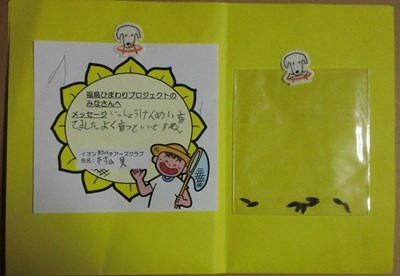 福島ひまわりプロジェクトの
みなさんへ
メッセージ いっしょうけんめい育
てました。よく育つといいですね。
イオン チアーズクラブ
氏名: